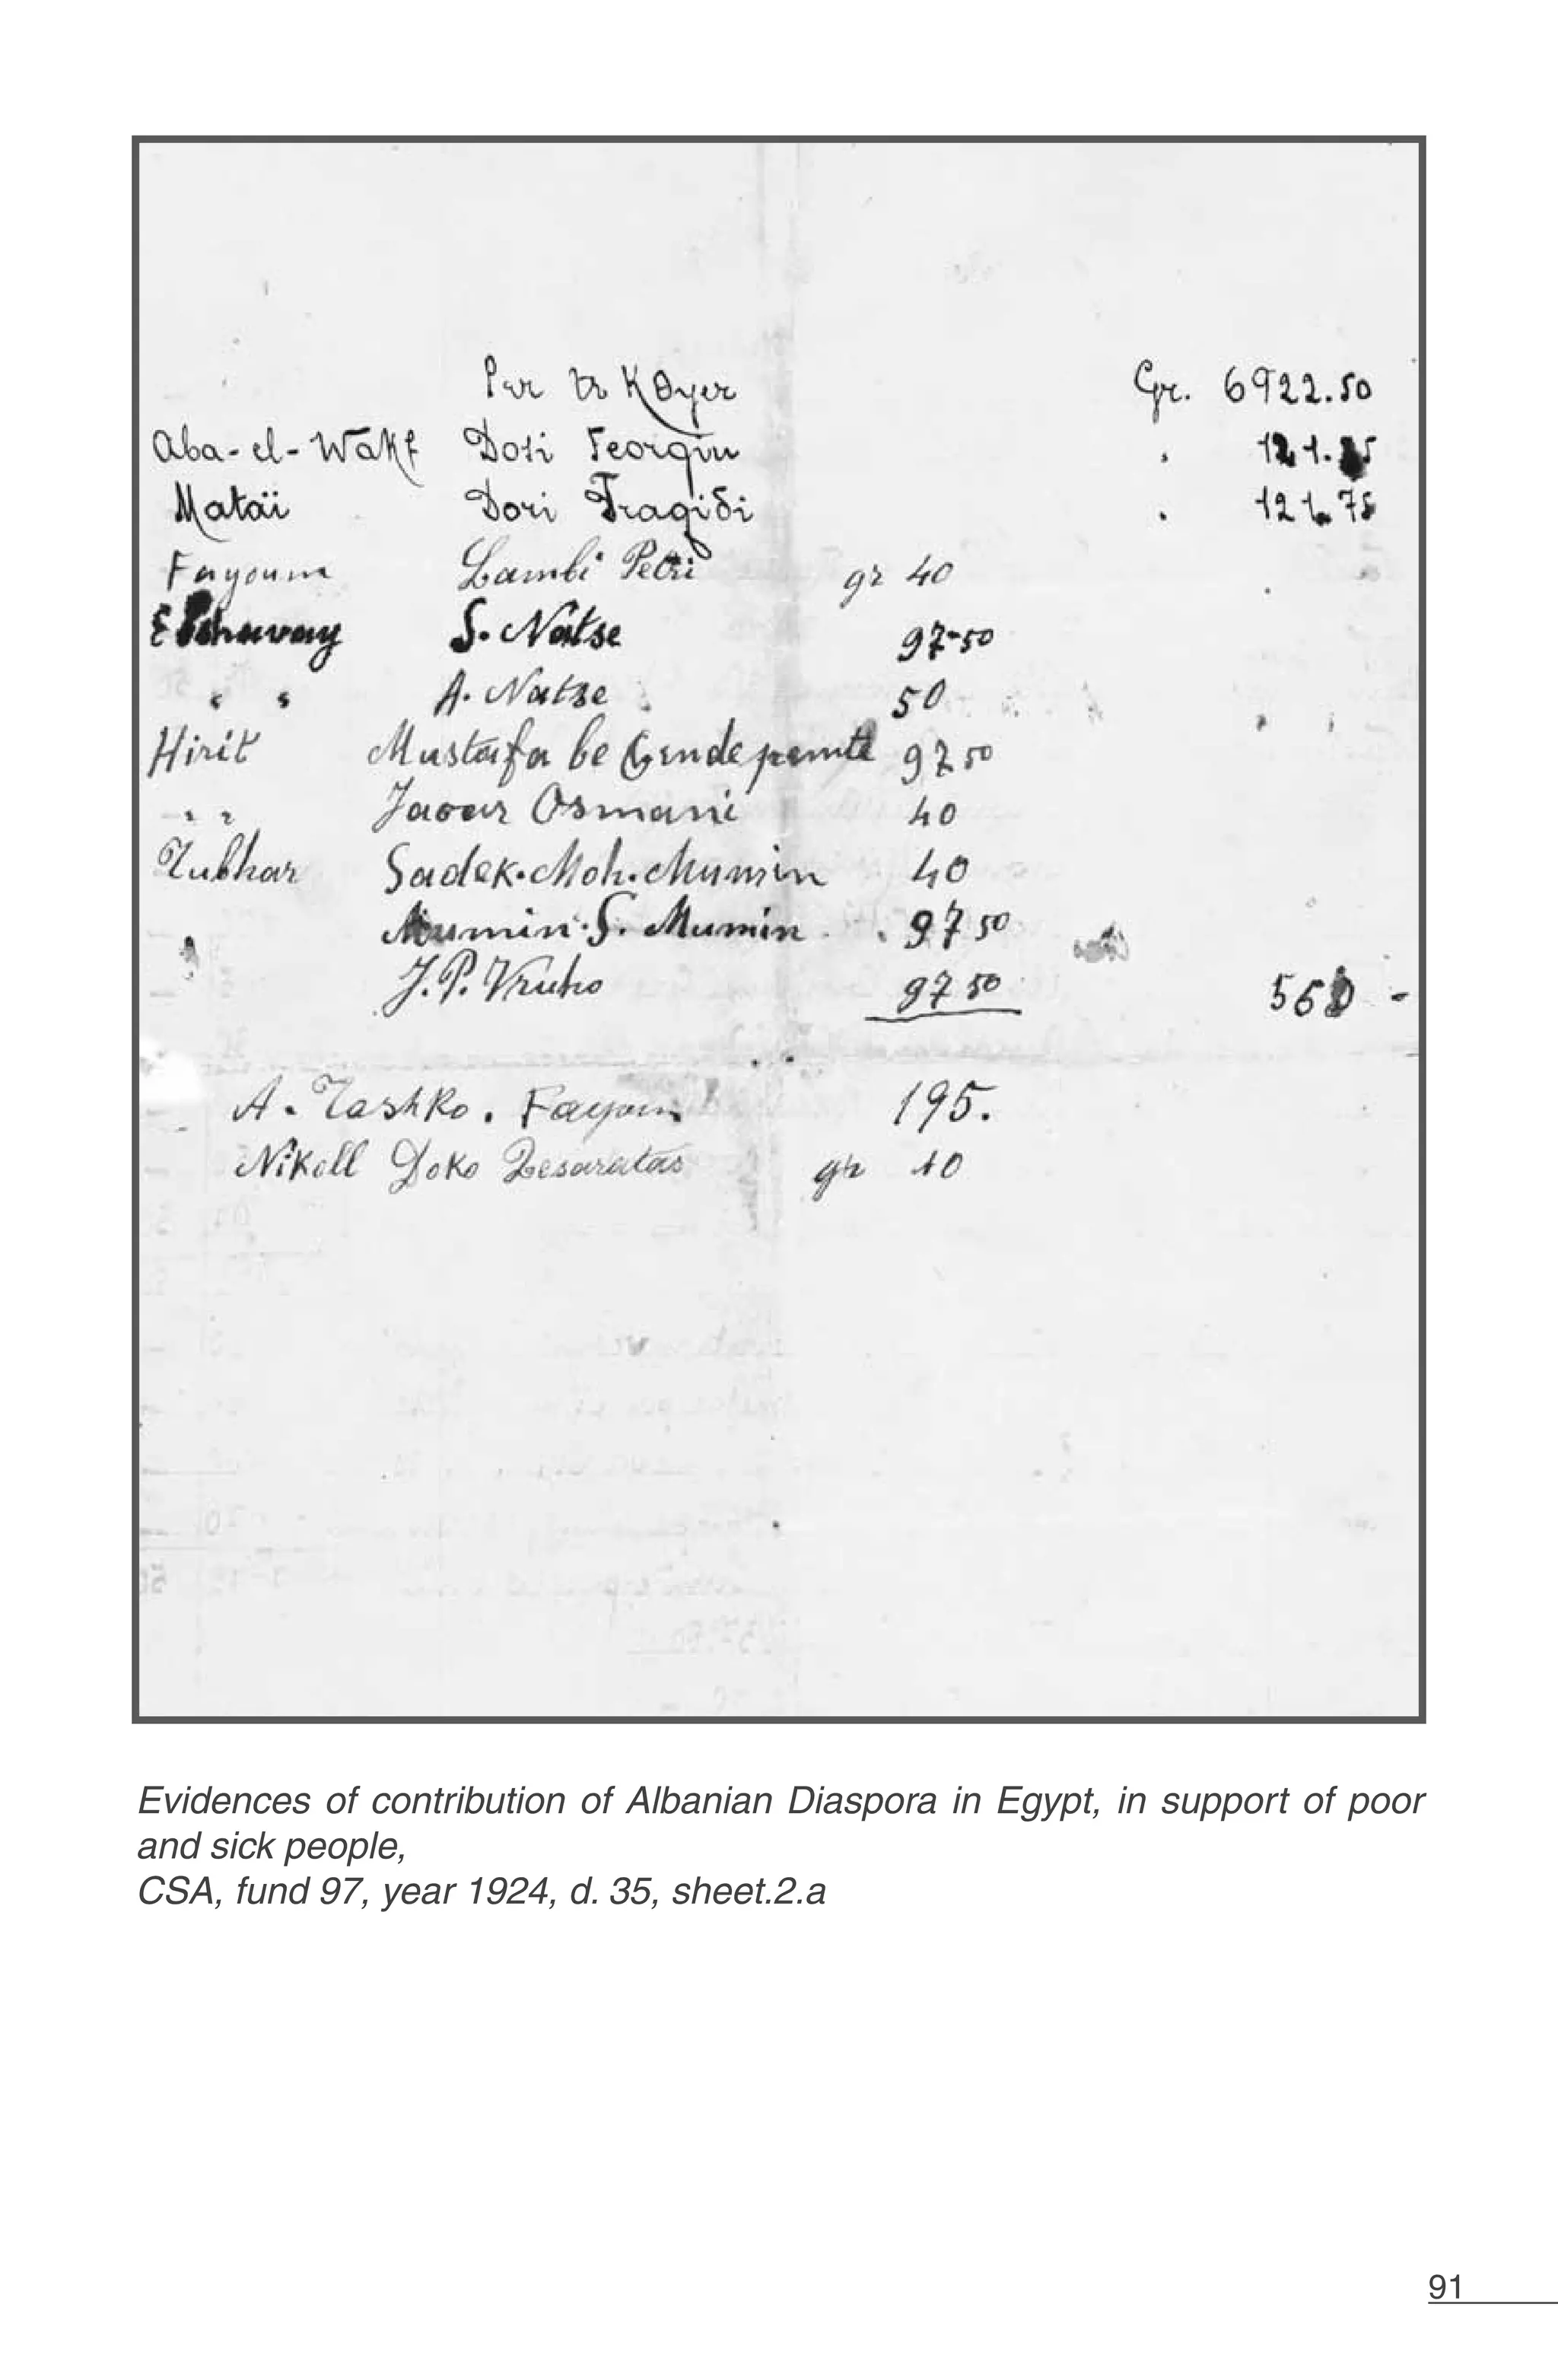 Per tr Kthyer Gr. 6922.50
Aba-el-Wakf Dosi Teorgiu 121.
Mataï Dori Tragiδi 121.75
Fayoum Lambi Petri gr 40
S. Natse 97-50
" " A. Natse 50
Hirit Mustafa be 97 50
" " Javer Osmani 40
Tubhar Sadek. Moh. Mumin 40
Mumin. S. Mumin 97 50
J. P. Vruho 97 50 560 -
A. Tashko. Fayoum 195.
Nikoll Doko Zesaratas gr 10
Evidences of contribution of Albanian Diaspora in Egypt, in support of poor
and sick people,
CSA, fund 97, year 1924, d. 35, sheet.2.a
91